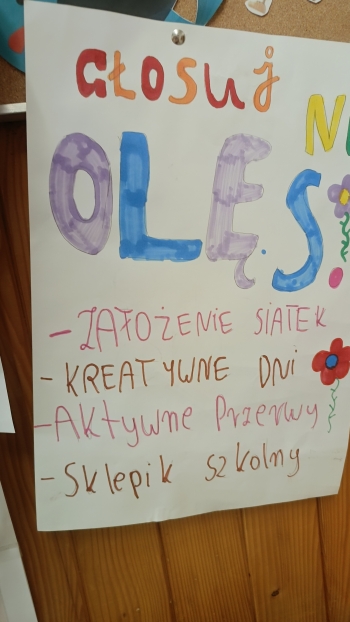 Głosuj
N
OLĘ.S.
- ZAŁOŻENIE SIATEK
- KREATYWNE DNi
- Aktywne Przerwy
- Sklepik szkolny